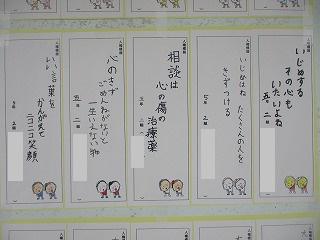 人権標語
いじめする
その心も
いたいよね
五年 二組
人権標語
いじめは たくさんの人を
きずつける
5年 2組
人権標語
相談は
心の傷の
治療薬
五年 二組
人権標語
心のきず
ごめんねがないと
一生いえない物
五年 二組
人権標語
いい言葉を
かんがえて
ニコニコ笑顔
5年 2組